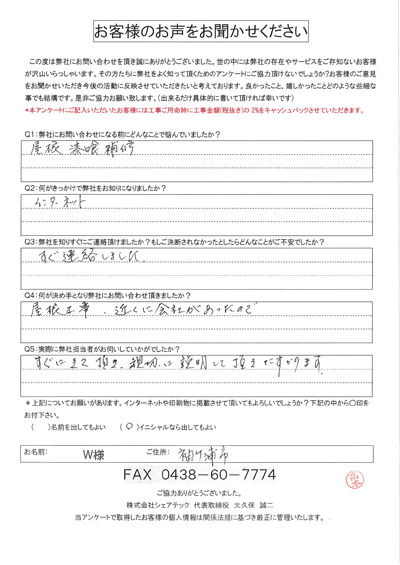 お客様のお声をお聞かせください
この度は弊社にお問い合わせを頂き誠にありがとうございました。世の中には弊社の存在やサービスをご存知ないお客様
が沢山いらっしゃいます。その方たちに弊社をよく知って頂くためのアンケートにご協力頂けないでしょうか?お客様のご意見
をお聞かせいただき今後の活動に反映させていただきたいと考えております。良かったこと、嬉しかったことどのような些細な
事でも結構です。是非ご協力お願い致します。(出来るだけ具体的に書いて頂ければ幸いです)
*本アンケートにご記入いただいたお客様には工事ご用命時に工事金額(税抜き)の2%をキャッシュバックさせていただきます。
Q1:弊社にお問い合わせになる前にどんなことで悩んでいましたか?
屋根 漆喰補修
Q2:何がきっかけで弊社をお知りになりましたか?
インターネット
Q3:弊社を知りすぐにご連絡頂けましたか?もしご決断されなかったとしたらどんなことがご不安でしたか?
すぐ連絡しました。
Q4:何が決め手となり弊社にお問い合わせ頂きましたか?
屋根工事、近くに会社があったので
Q5:実際に弊社担当者がお伺いしていかがでしたか?
すぐに来て頂き、親切に説明して頂きたすかります
*上記についてお願いがあります。インターネットや印刷物に掲載させて頂いてもよろしいでしょうか?下記の中から○印を
お付下さい。
( )名前を出してもよい (○)イニシャルなら出してもよい
お名前: W様 ご住所: 袖ケ浦市
FAX 0438-60-7774
ご協力ありがとうございました。
株式会社シェアテック 代表取締役 大久保 誠二
当アンケートで取得したお客様の個人情報は関係法規に基づき厳正に管理いたします。